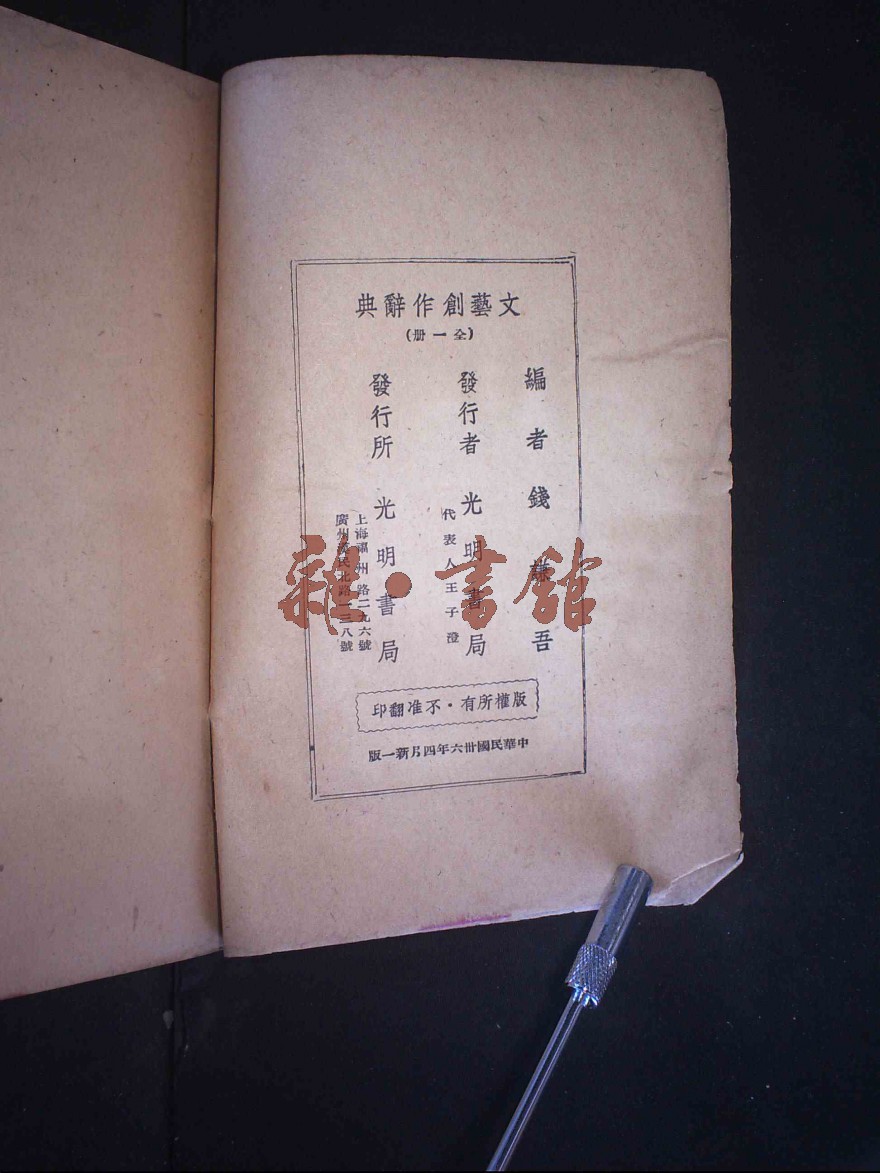 文藝創作辭典
(全一册)
編者 錢謙吾
發行者 光明書局
代表人王子澄
發行所 光明書局
上海福州路二九六號
廣州漢民北路一三八號
版權所有·不准翻印
中華民國卅六年四月新一版
雜·書館